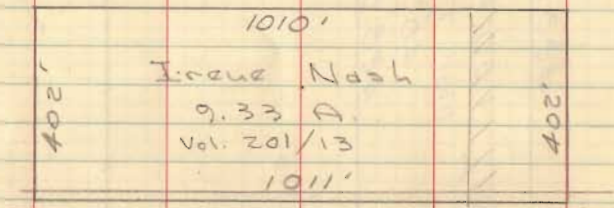 1010'
Irene Nash
9.33 A.
Vol. 201/13
402'
402'
1011'